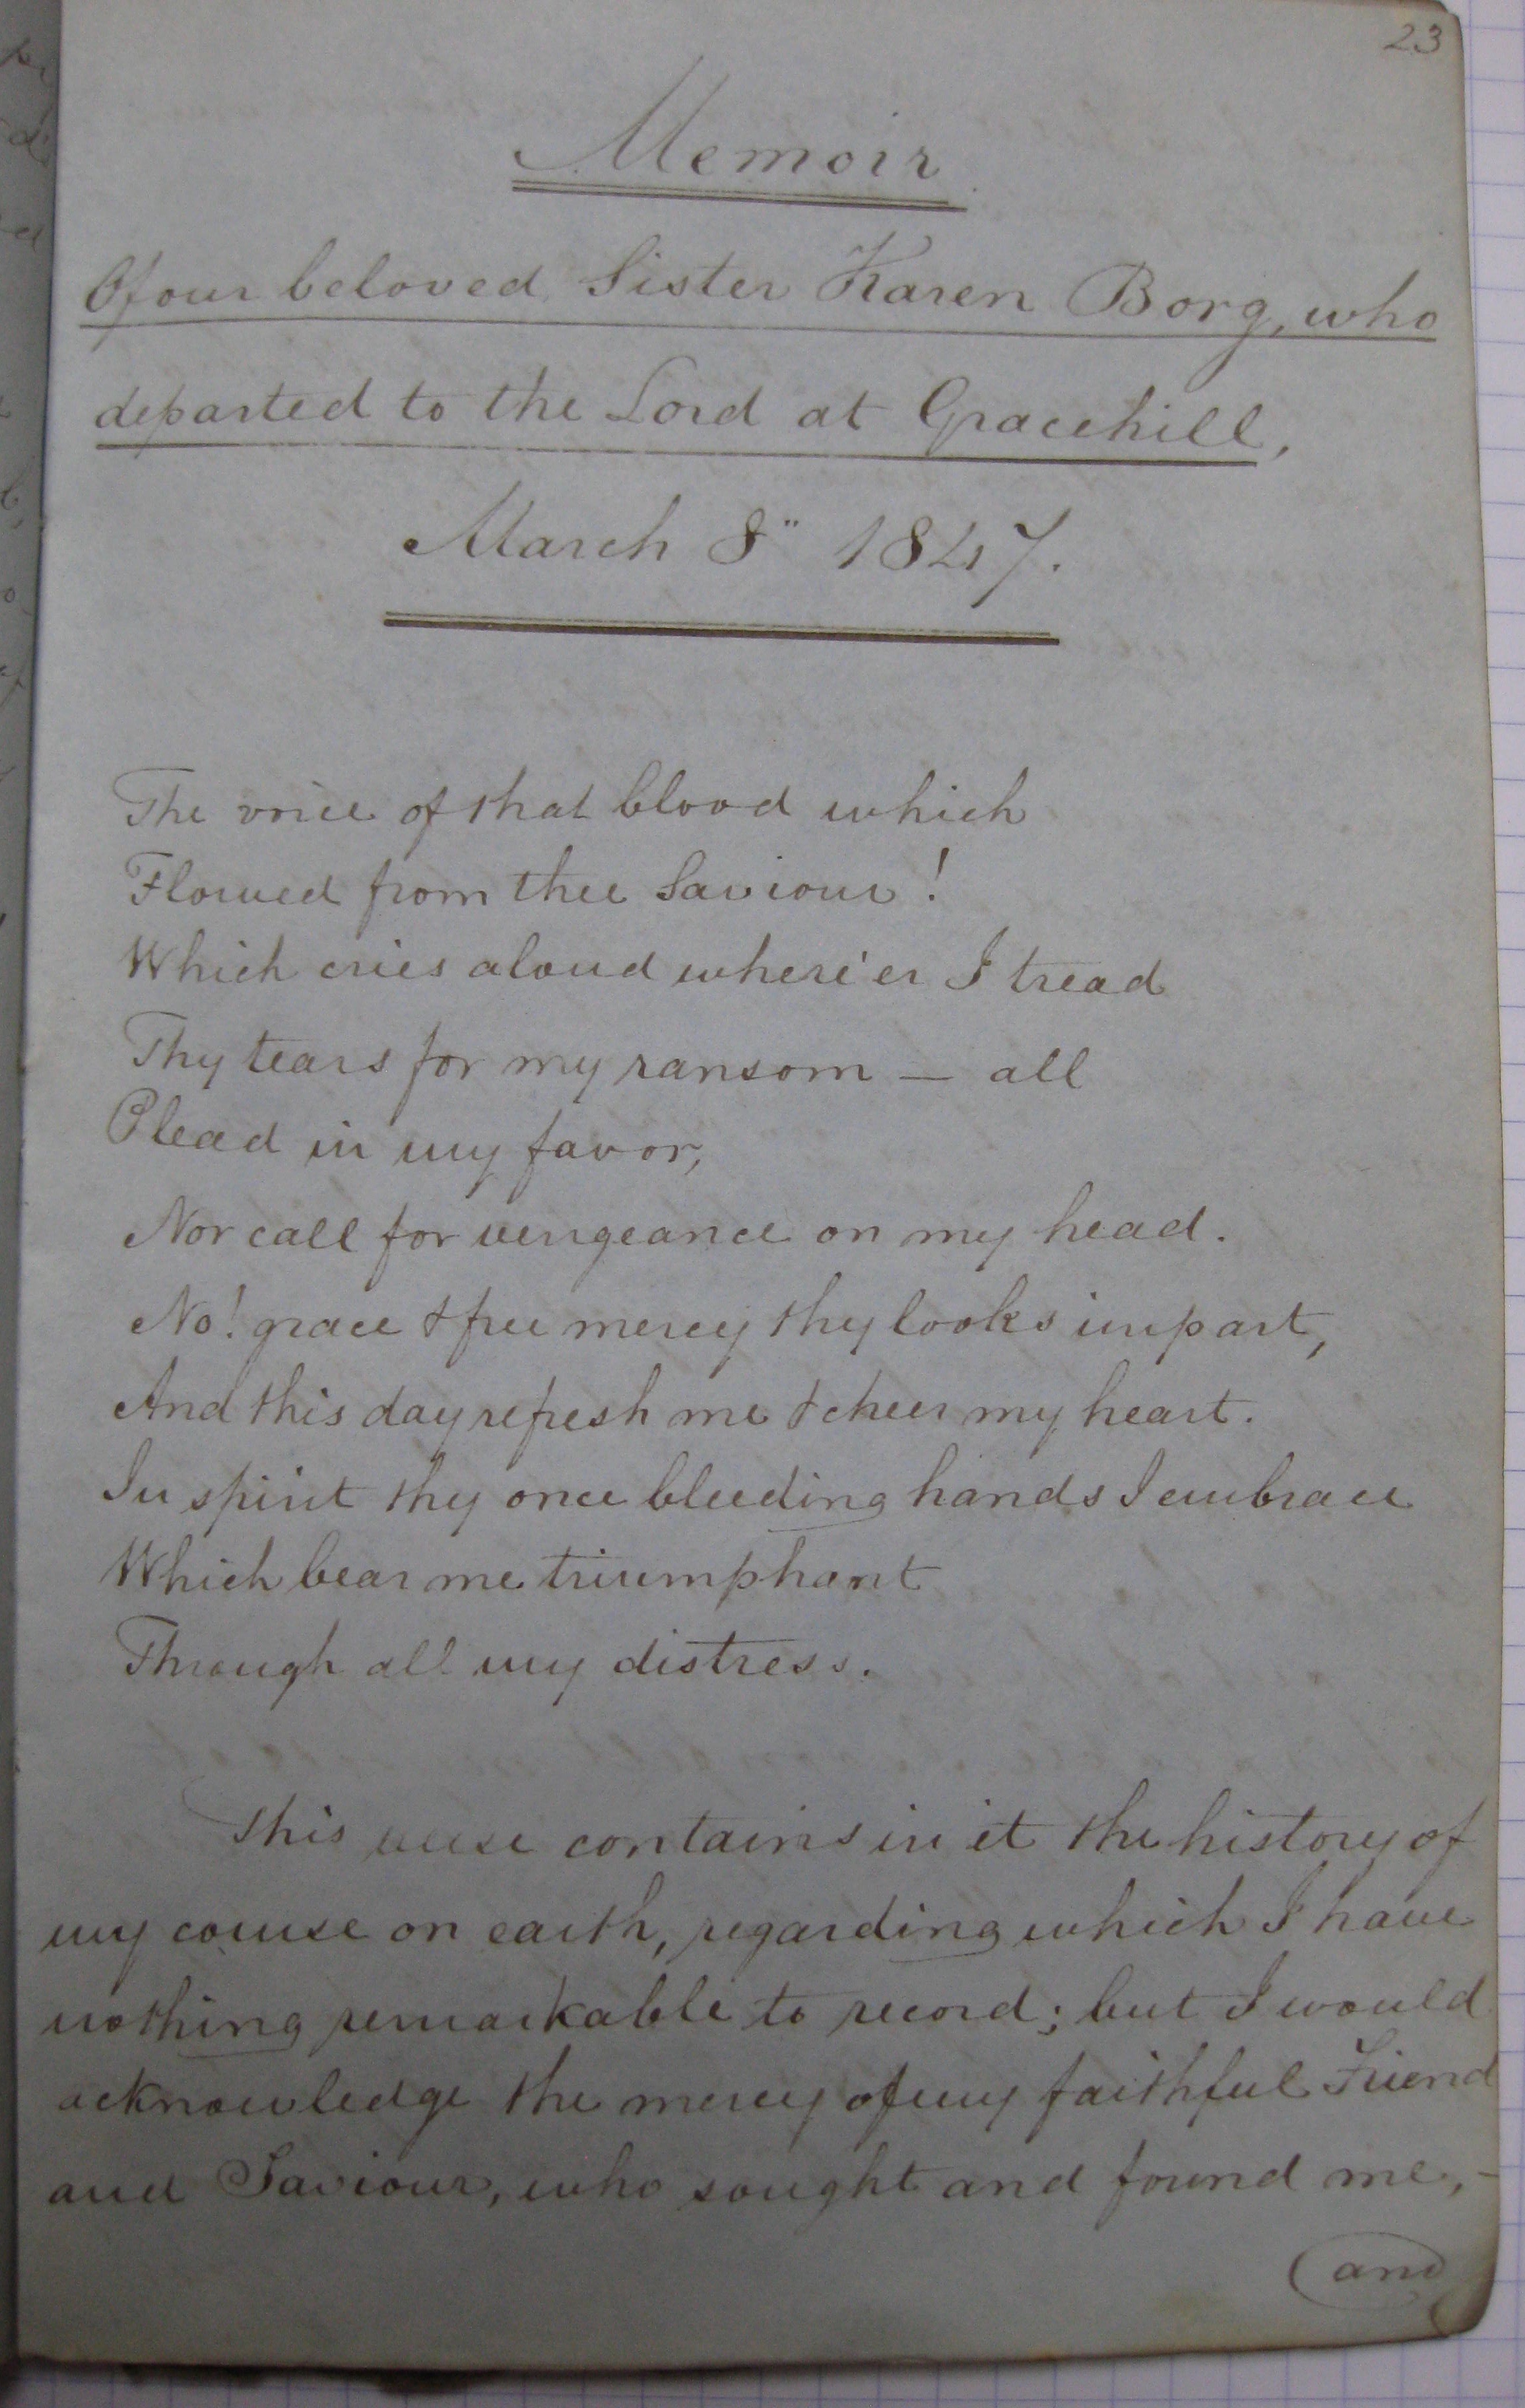 23
Memoir
Of our beloved Sister Karen Borg, who
departed to the Lord at Gracehill,
March 8" 1847.
The voice of that blood which
Flowed from thee Saviour!
Which cries aloud where'er I tread
Thy tears for my ransom — all
Plead in my favor,
Nor call for vengeance on my head.
No! grace & free mercy thy looks impart,
And this day refresh me & cheer my heart.
In spirit thy once bleeding hands I embrace
Which bear me triumphant
Through all my distress.
This verse contains in it the history of
my course on earth, regarding which I have
nothing remarkable to record; but I would
acknowledge the mercy of my faithful Friend
and Saviour, who sought and found me, -
and